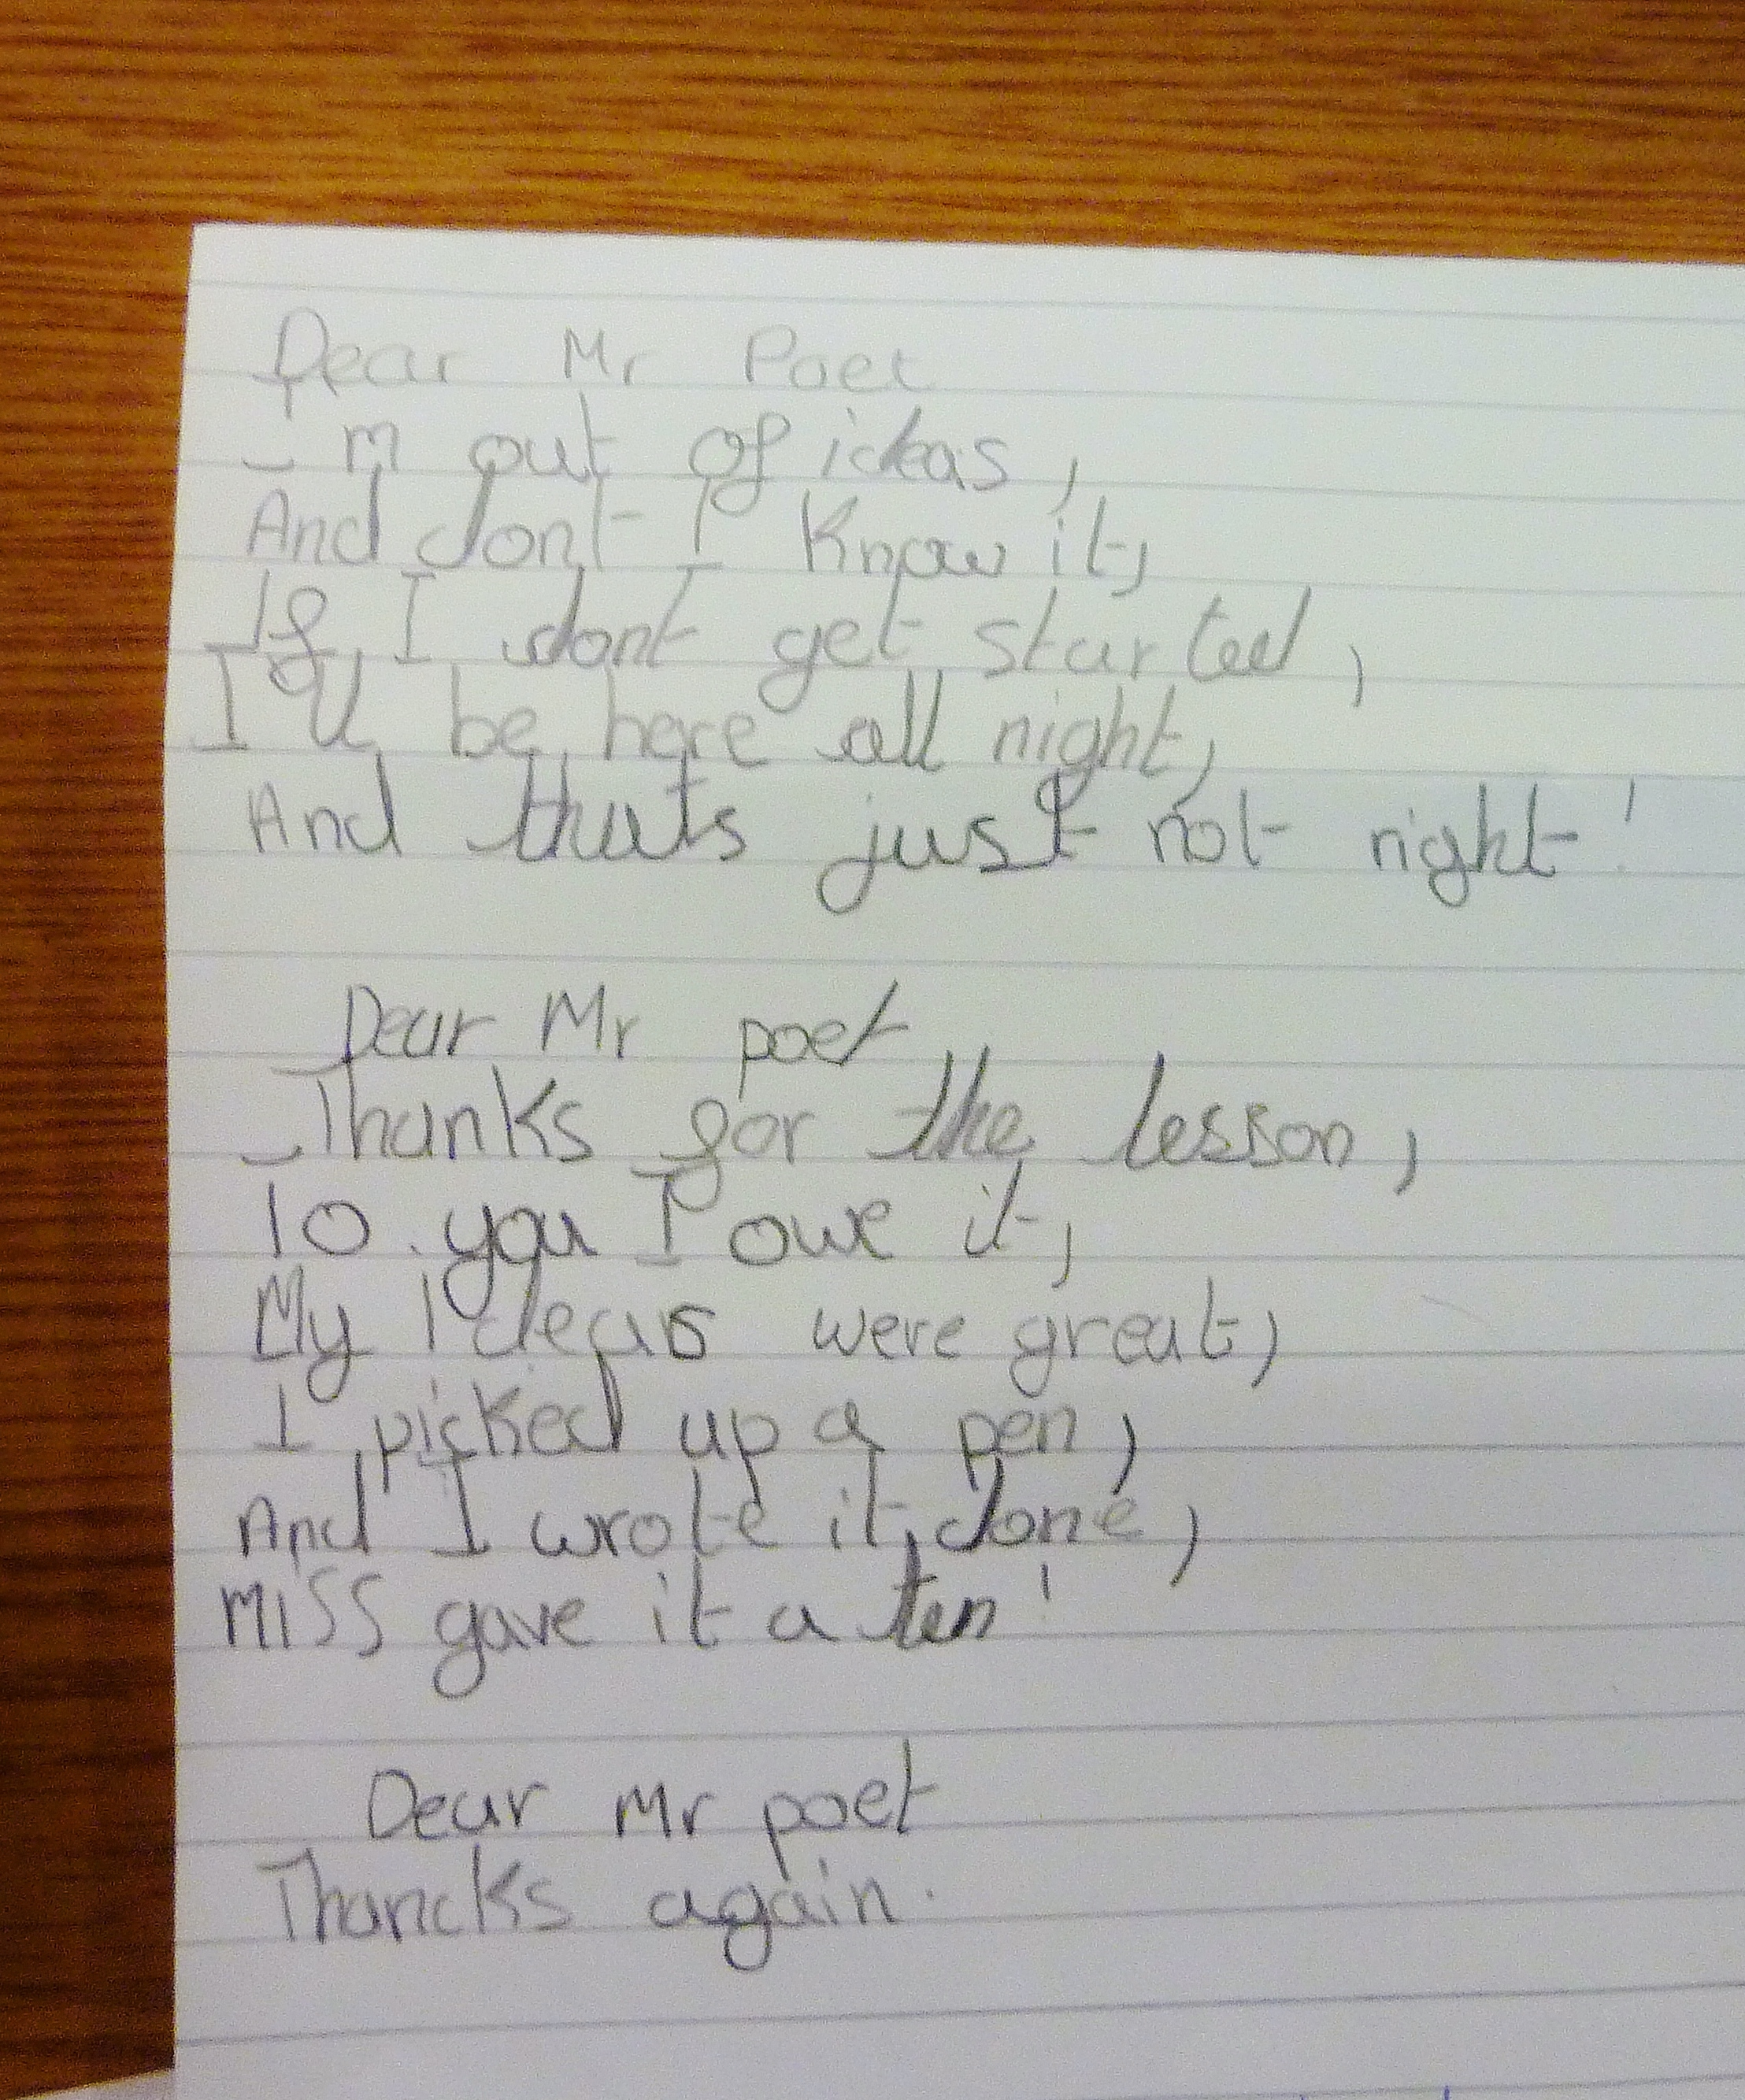 Dear Mr Poet
I'm out of ideas,
And dont I know it,
If I dont get started,
I'll be here all night,
And thats just not right!
Dear Mr poet
Thanks for the lesson,
To you I owe it,
My Ideas were great,
I picked up a pen,
And I wrote it done,
Miss gave it a ten!
Dear Mr poet
Thancks again.